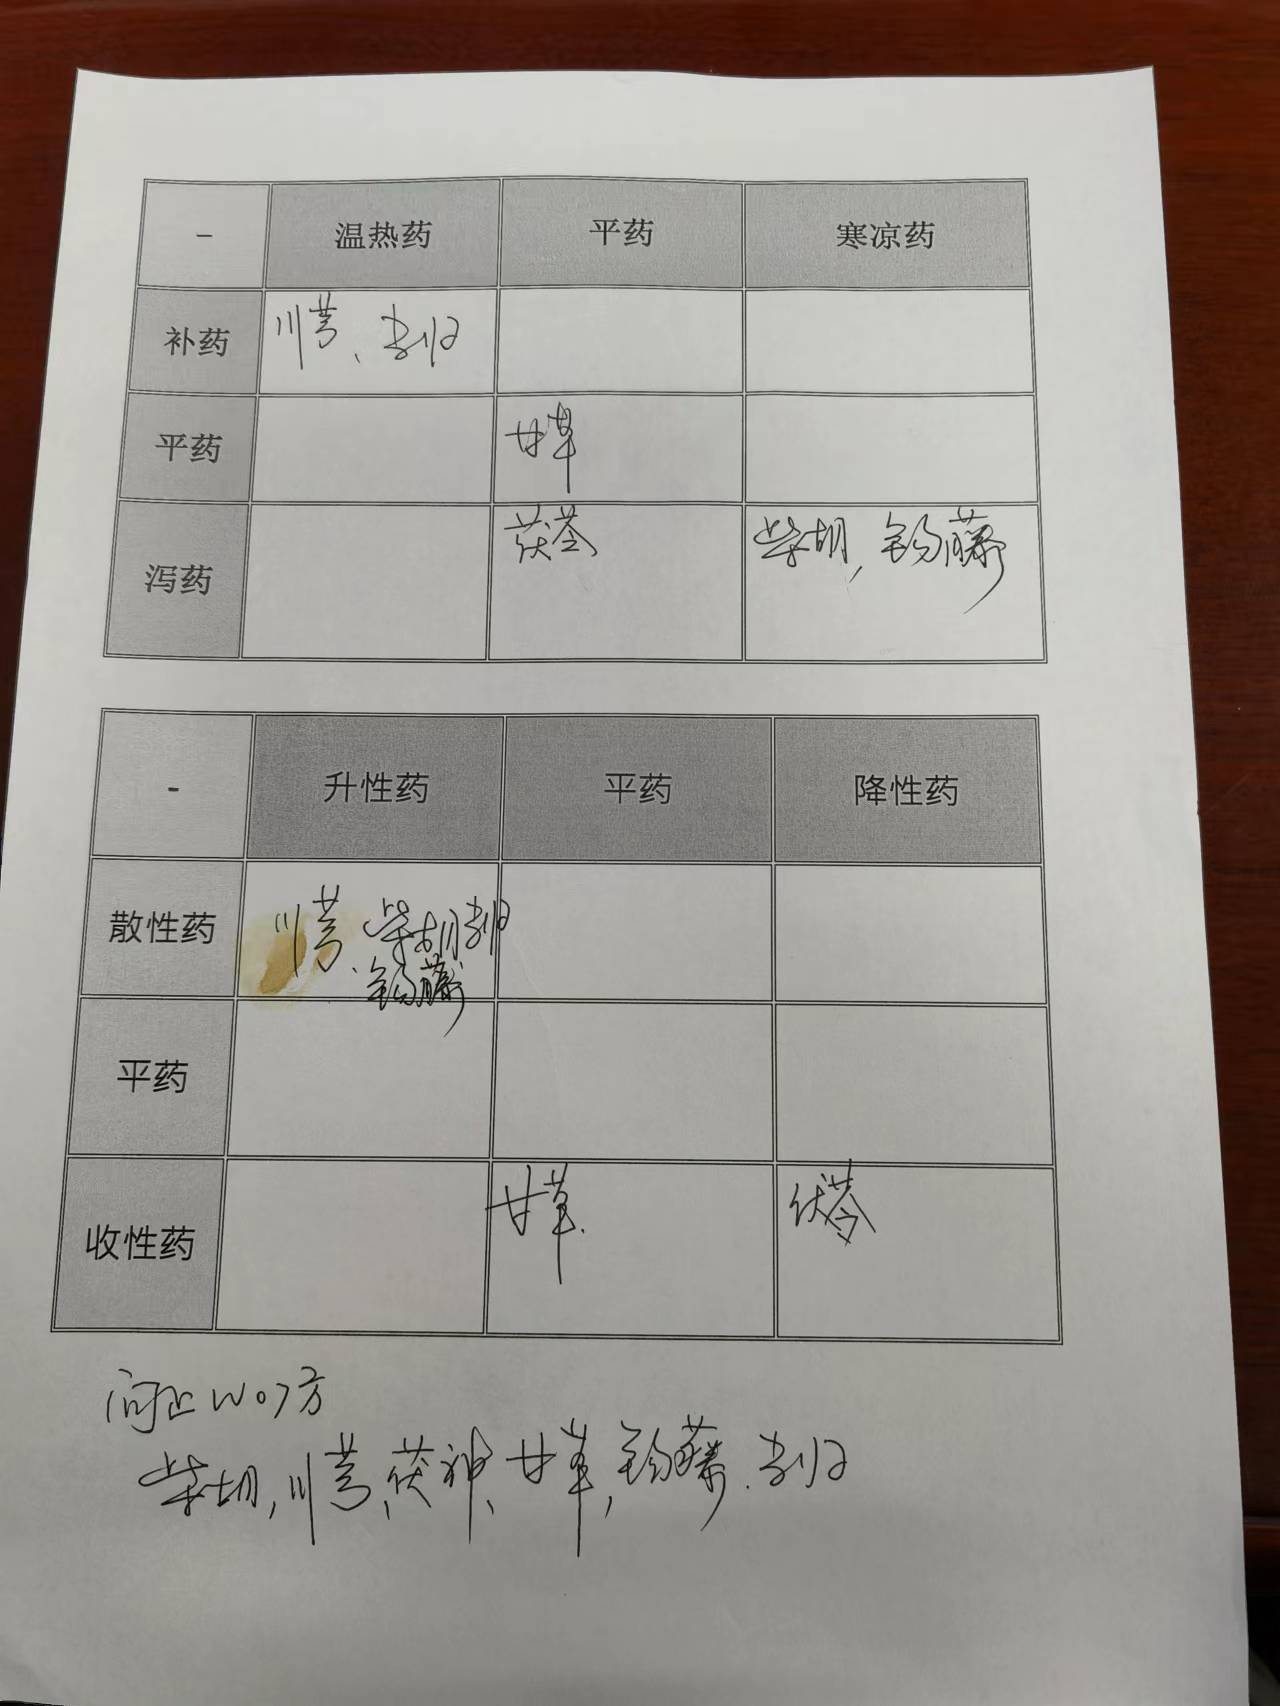 - 温热药 平药 寒凉药
补药 川芎、当归
平药 甘草
泻药 茯苓 柴胡, 钩藤
- 升性药 平药 降性药
散性药 川芎、柴胡 当归
钩藤
平药
收性药 甘草. 茯苓
问止W07方
柴胡, 川芎, 茯神, 甘草, 钩藤. 当归